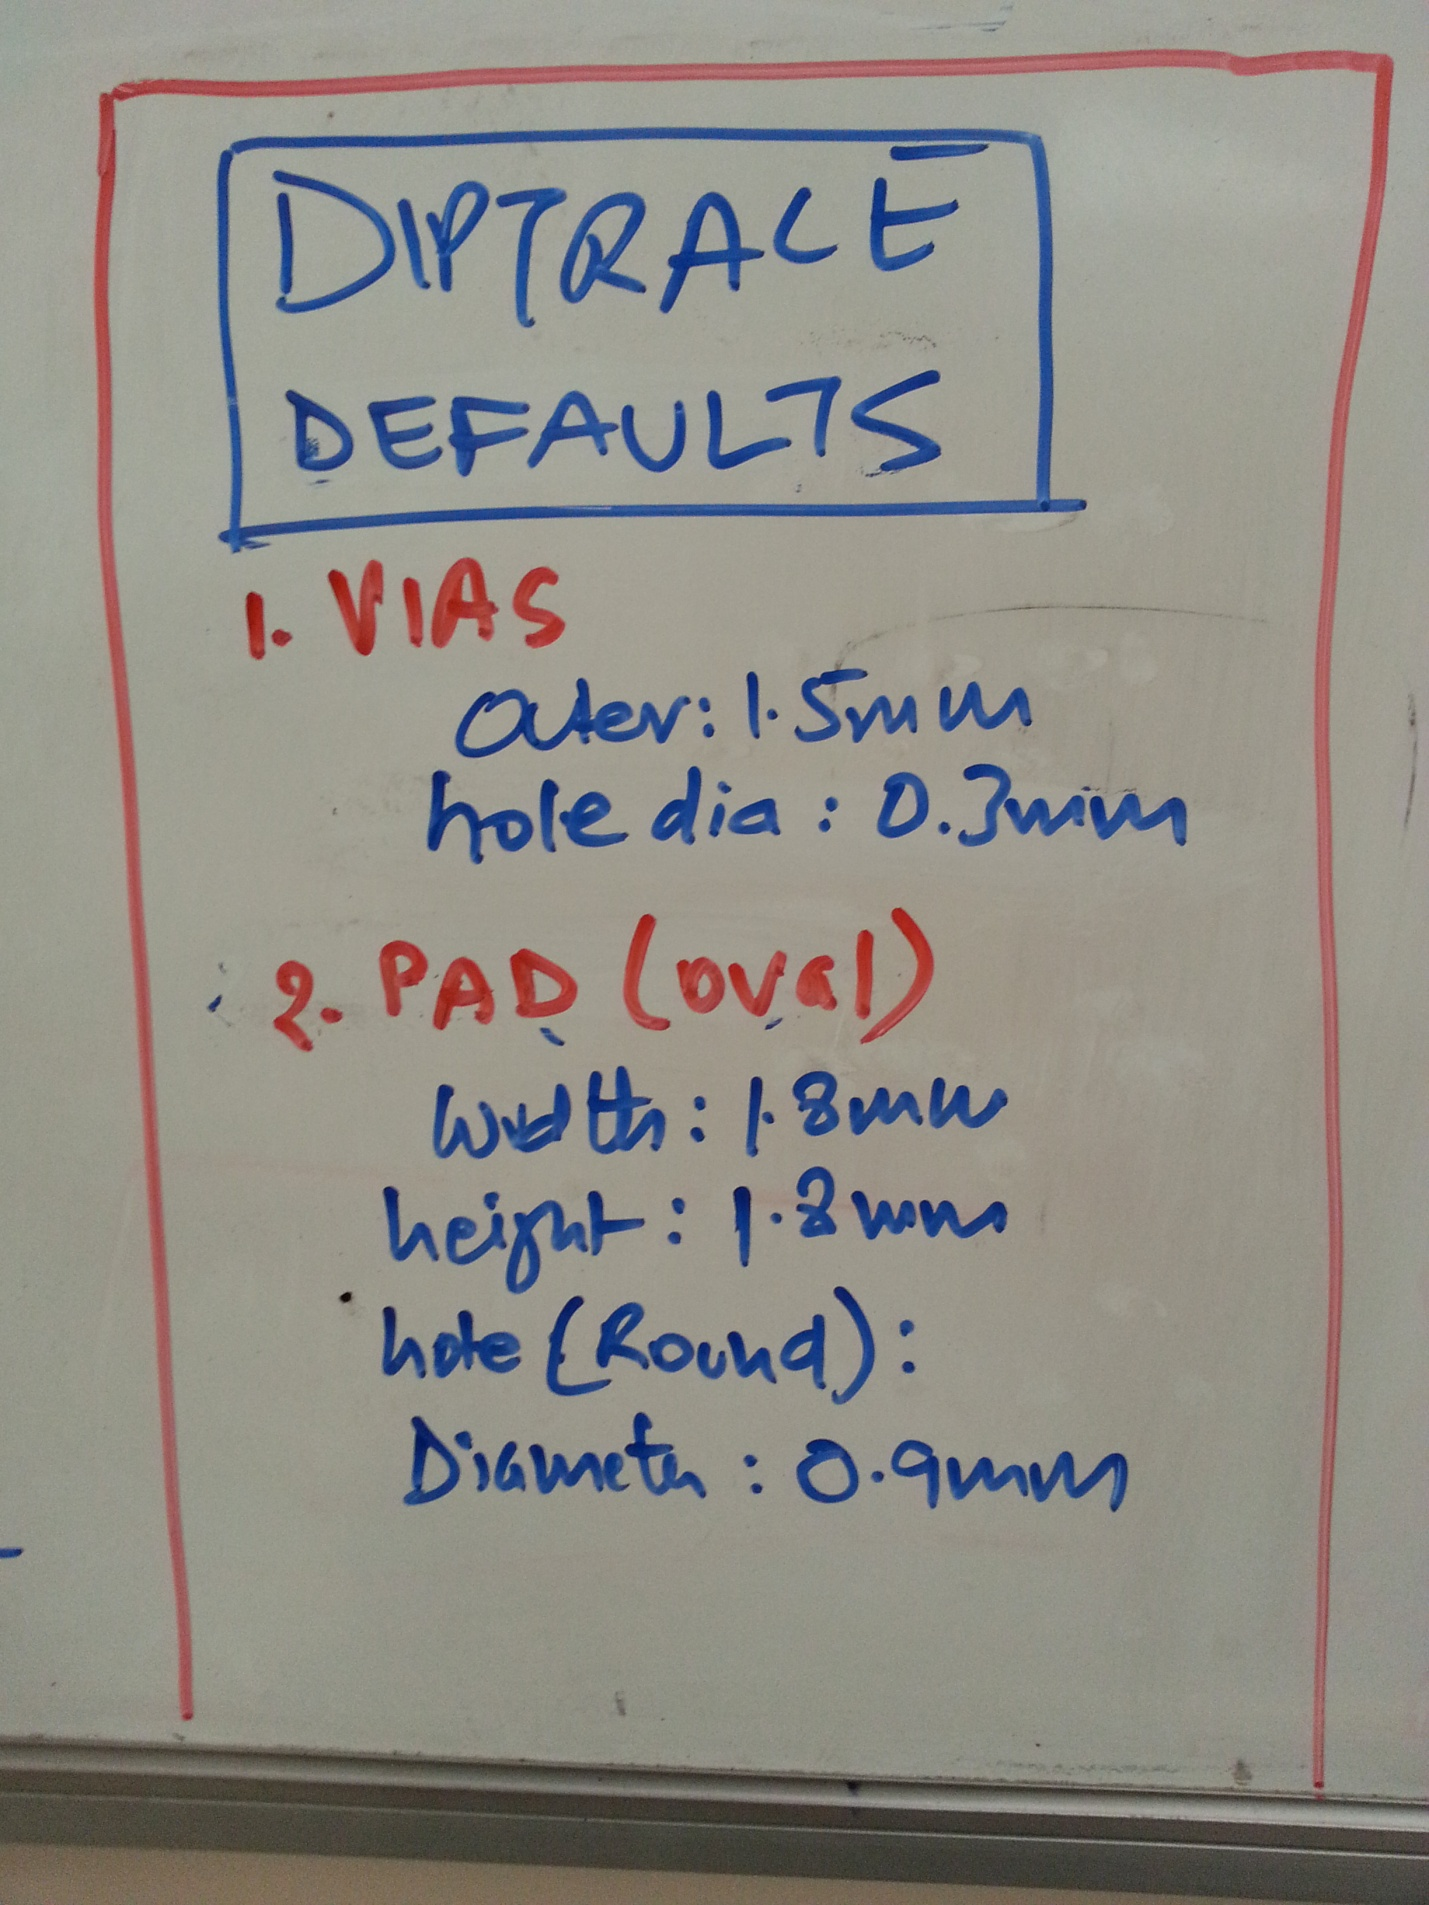 DIPTRACE
DEFAULTS
1. VIAS
Outer: 1.5mm
hole dia : 0.3mm
2. PAD (oval)
Width : 1.8mm
height : 1.8mm
hole (Round) :
Diameter : 0.9mm